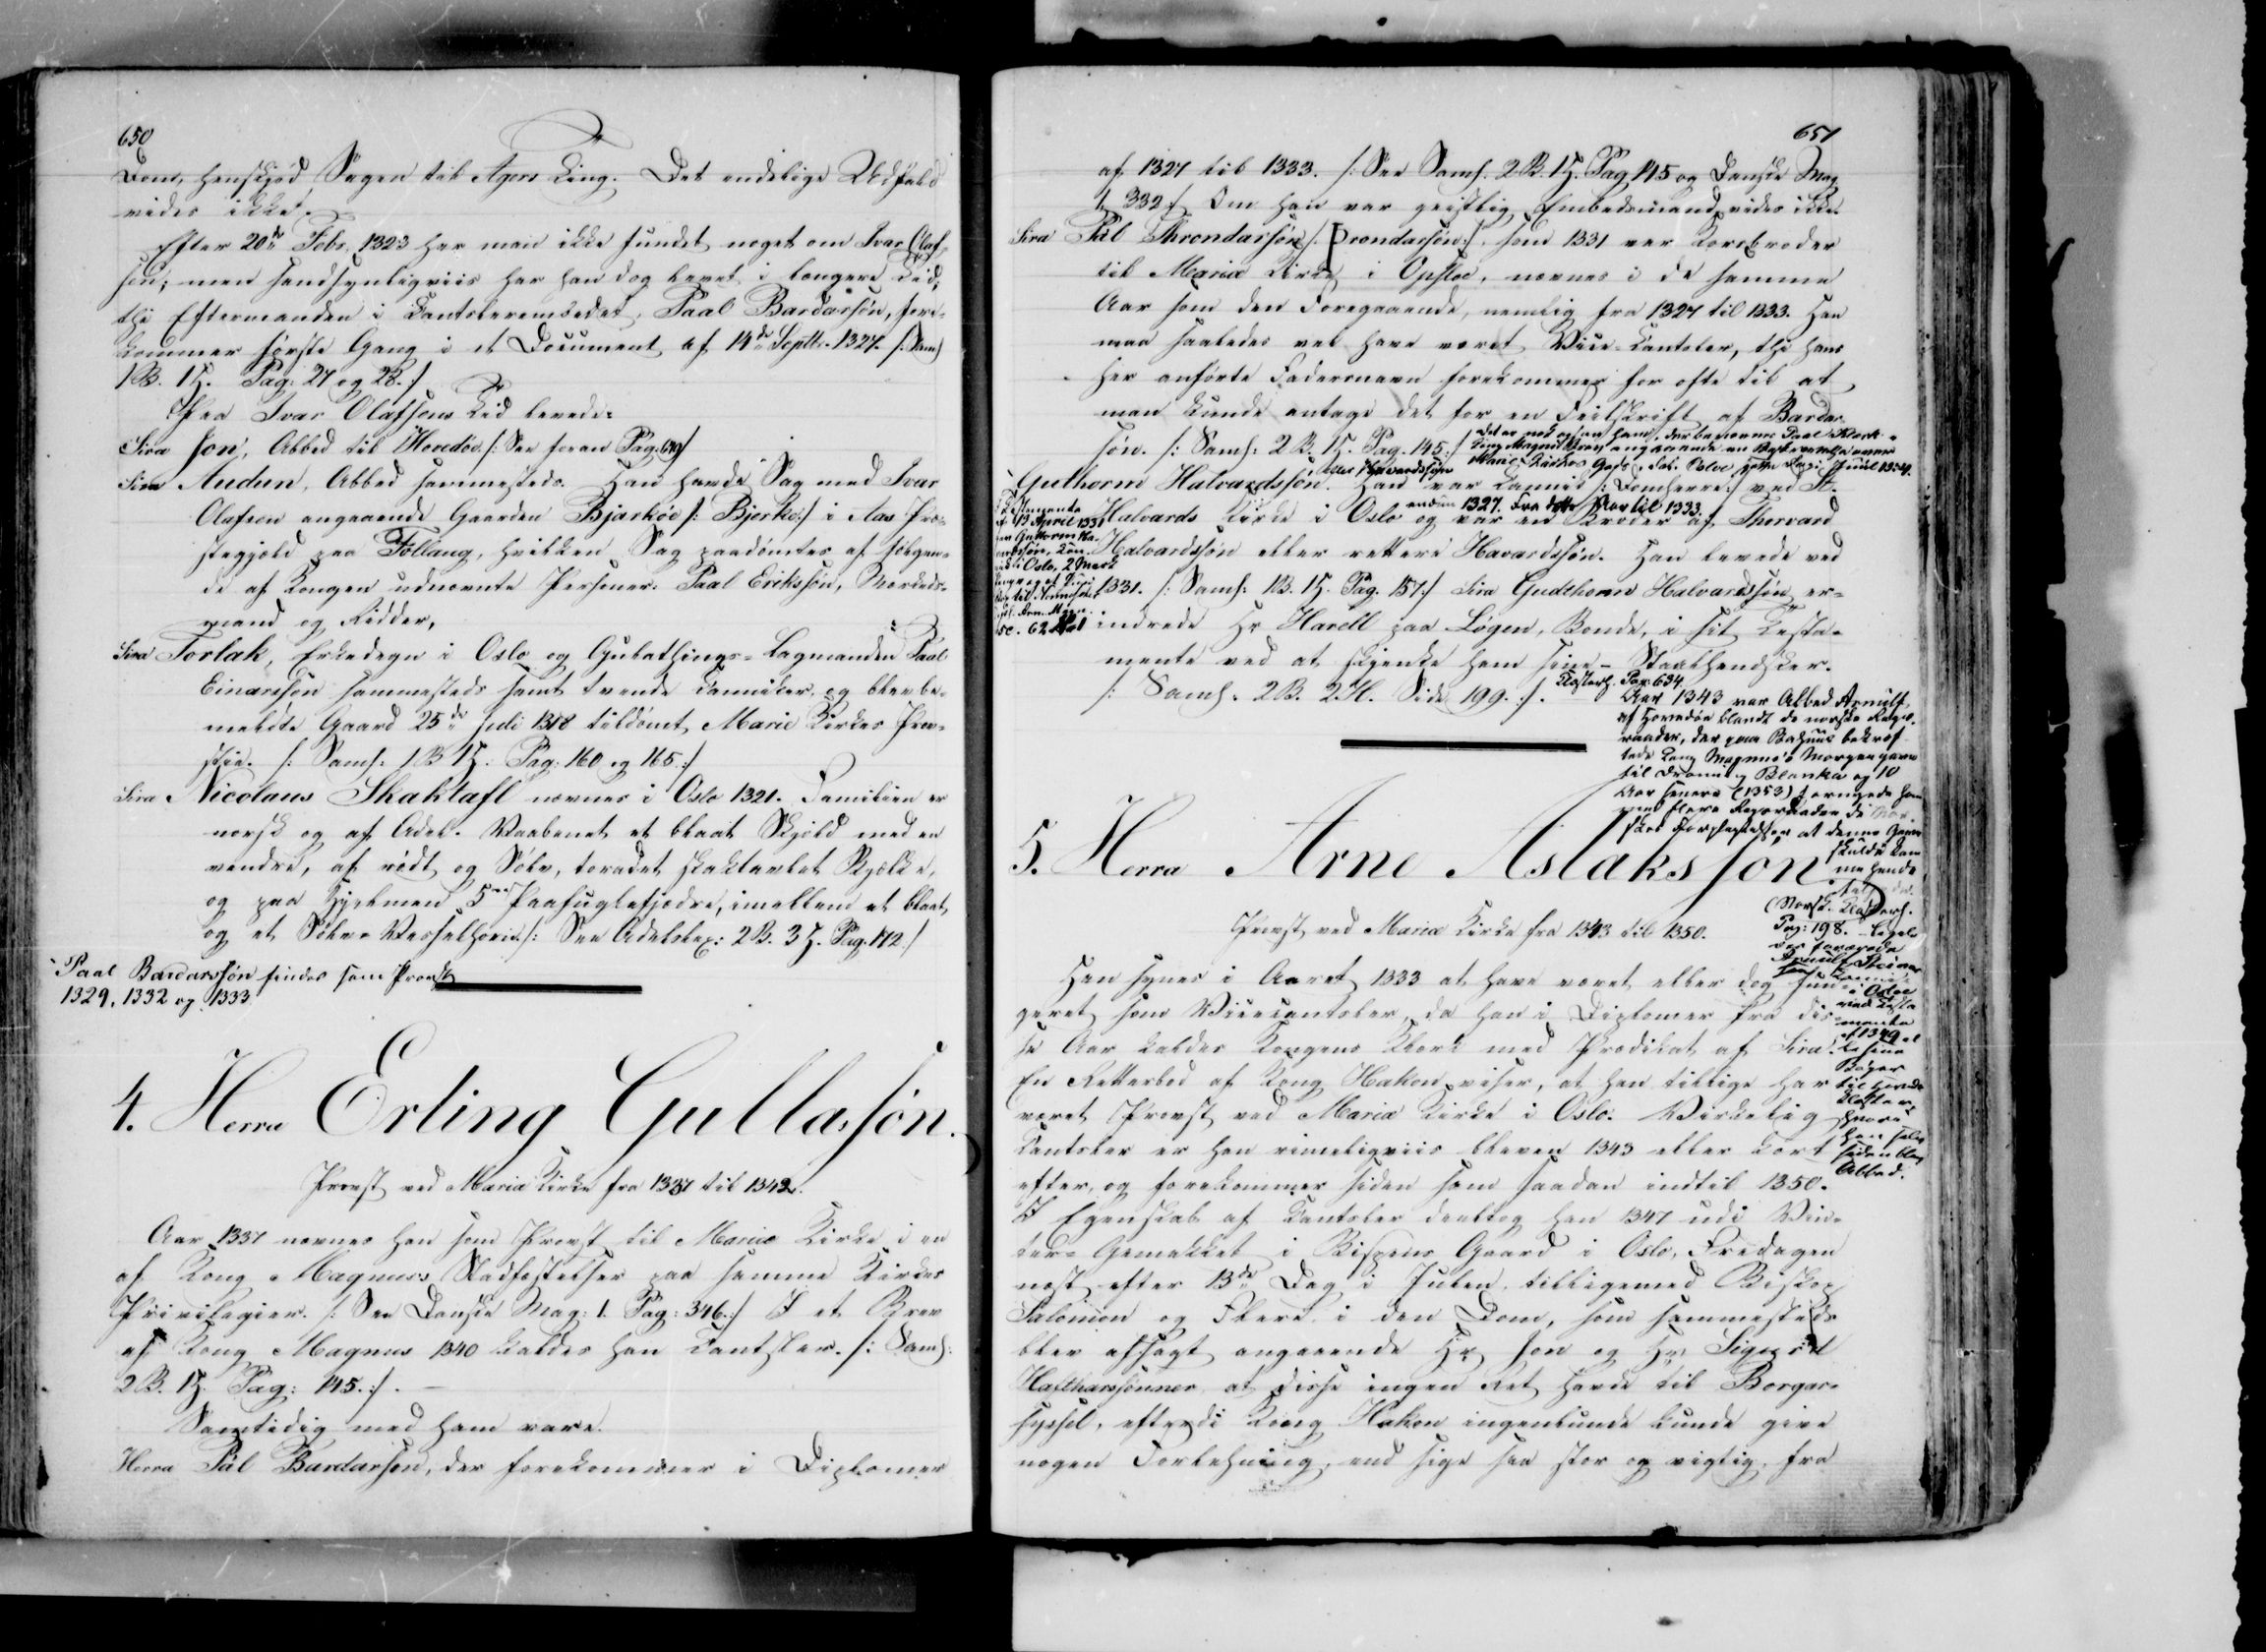 650
Dom, henskjød Sagen til Agers Ting. Det endelige Udfald
vides ikke.
Efter 20de Febr. 1323 har man ikke fundet noget om Ivar Olaf-
søn, men sandsynligviis har han dog levet i længere Tid,
thi Eftermanden i Cantslerembedet, Paal Bardarsøn, fore-
kommer første Gang i et Document af 14de Septbr. 1327. /: Saml.
1 B. 1 H. Pag: 27 og 28. :/
Paa Ivar Olafsøns Tid levede:
Sira Jon, Abbed til Hovedøe. /: See foran Pag: 
Sira Audun, Abbed sammesteds. Han havde Sag med Ivar
Olafsen angaaende Gaarden Bjarkøe /: Bjerke :/ i Aas Præ-
stegjæld paa Follaug, hvilken Sag paadømtes af følgen-
de af Kongen udnævnte Personer. Paal Eriksøn, Merkes-
mand og Ridder,
Sira Torlak, Erkedegn i Oslo og Gulathings-Lagmanden Paal
Einarssøn sammesteds samt tvende Canniker, og blev be-
meldte Gaard 25de Juli 1318 tildømt Marie Kirkes Prov-
stie. /: Saml. 1 B 1 H. Pag: 160 og 165 :/
Sira Nicolaus Skaktafl nævnes i Oslo 1321. Familien er
norsk og af Adel. Vaabenet et blaat Skjold med en
vendre, af rødt og Sølv, toradet skaktavlet Bjelke,
og paa Hjelmen 5 Paafuglefjedre, imellem et blaat
og et Sølv-Vesselhorn. /: See Adelslex: 2 B. 3 H. Pag. 172 :/
Paal Bardarssøn findes som Provst
1329, 1332 og 1333.
4. Herra Erling Gullasøn.
Provst ved Mariæ Kirke fra 1337 til 1342.
Aar 1337 nævnes han som Provst til Mariæ Kirke i en
af Kong Magnus's Stadfæstelser paa samme Kirkes
Privilegier. /: See Danske Mag: 1. Pag: 346. :/ I et Brev
af Kong Magnus 1340 kaldes han Cantsler. /: Saml.
2 B. 1 H. Pag: 145. :/. —
Samtidig med ham vare.
Herra Pål Bardarsøn, der forekommer i Diplomer
651
af 1327 til 1333. /: See Saml. 2 B. 1 H. Pag 145 og Danske Mag
1, 332 :/ Om han var geistlig Embedsmand vides ikke.
Sira Pål Throndarsøn /: Þrondarsøn :/, som 1331 var Korsbroder
til Mariæ Kirke i Opsloe, nævnes i de samme
Aar som den Foregaaende, nemlig fra 1327 til 1333. Han
maa saaledes vel have været Vice-Cantsler, thi hans
her anførte Fadernavn forekommer for ofte til at
man kunde antage det for en Feilskrift af Bardar-
søn. /: Saml: 2 B. 1 H. Pag. 145 :/
Det er nok ogsaa ham, der benævnes Paal Klerk i
Kong Magni Brev angaaende en
Marie Kirkes Gods, dat. Juul 1324.
eller Havardssøn
Guthorm Halvardssøn. Han var Cannik /: Domherre :/ ved St.
Halvards Kirke i Oslo endnu 1327. Fra dette Aar til 1333. og var en Broder af Thorvard
Halvardssøn eller rettere Havardssøn. Han levede ved
1331. /: Saml: 1 B. 1 H. Pag. 157 :/ Sira Gudthorm Halvardssøn er-
indrede Hr Harell paa Løgen, Bonde, i sit Testa-
mente ved at skjenke ham sine Staalhandsker.
/: Saml. 2 B. 2 H. Side 199. :/.
Testamente
af 13 April 1331
Guttorm Ha-
vardssøn, Can-
nik i Oslo, 2 Mark
Klosterh. Pag: 634
Aar 1343 var Abbed Arnulf
af Hovedøe blandt de norske Rigs-
raader, der paa Bahuus bekræf-
tede Kong Magnus's Morgengave
til Dronning Blanka og 10
Aar senere (1353) fornyede han
med flere Rigsraader de Nor-
ske Forpligtelser, at denne Gave
skulde kom-
me hende
til del
(Norsk. Klosterh.
Pag: 198. —
var forærede
Arnulf Steinar
søn Cannik
i Osloe
ved Testa-
mente
af 1349 al-
le sine
Bøger
til Hovedø
Kloster,
hvori
han selv
siden blev
Abbed.
5. Herra Arne Aslaksson
Provst ved Mariæ Kirke fra 1343 til 1350.
Han synes i Aaret 1333 at have været eller dog fun-
geret som Vicecantsler, da han i Diplomer fra dis-
se Aar kaldes Kongens Klerk med Prædikat af Sira.
En Retterbod af Kong Hakon viser, at han tillige har
været Provst ved Mariæ Kirke i Oslo. Virkelig
Cantsler er han rimeligviis bleven 1343 eller kort
efter, og forekommer siden som saadan indtil 1350.
I Egenskab af Cantsler deeltog han 1347 udi Vin-
ter-Gemakket i Bispens Gaard i Oslo, Fredagen
næst efter 13de Dag i Julen tilligemed Biskop
Salomon og Flere i den Dom, som sammesteds
blev afsagt angaaende Hr Jon og Hr Sigurd
Hafthorssønner, at disse ingen Ret havde til Borgar-
syssel, efterdi Kong Hakon ingenlunde kunde give
nogen Forlehning, end sige saa stor og vigtig, fra